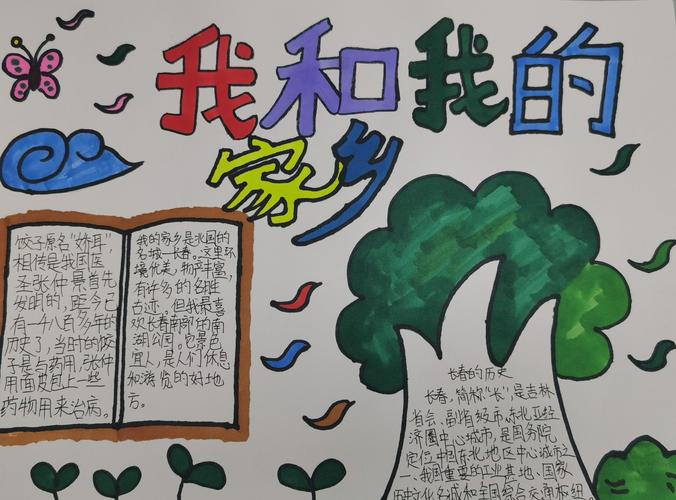 我和我的
家乡
饺子原名“娇耳”，
相传是我国医
圣张仲景首先
发明的，距今已
有一千八百多年的
历史了，当时的饺
子是与药用，张仲
用面皮包上一些
药物用来治病。
我的家乡是北国的
名城—长春。这里环
境优美，物产丰富，
有许多的名胜
古迹，但我最喜
欢长春南部的南
湖公园。它景色
宜人，是人们休息
和游览的好地
方。
长春的历史
长春，简称“长”，是吉林
省会、副省级市、东北亚经
济圈中心城市，是国务院
定位中国东北地区中心城市之
一、我国重要的工业基地、国家
历史文化名城和全国综合交通枢纽